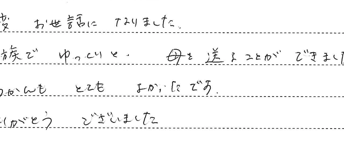 変 お世話に なりました.
族で ゆっくりと. 母を 送ることが できまし
かんも とても よかったです.
りがとう ございました